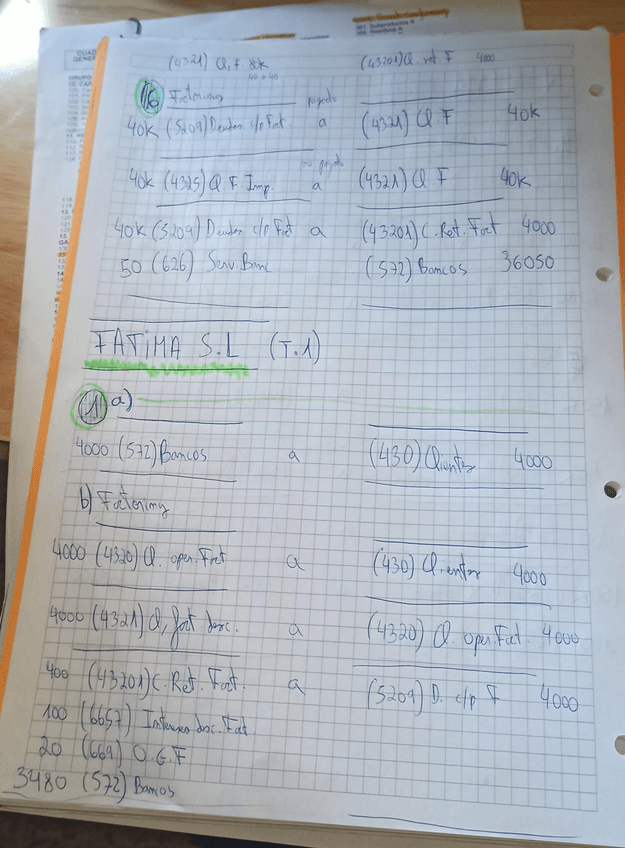 (4321) Cl, F 80k (43201) Cl. ret F 4000
40 + 40
16 Factoring pagado
40k (5209) Deudas c/p Fact a (4321) Cl F 40k
no pagado
40k (4325) Cl F. Imp a (4321) Cl F 40k
40k (5209) Deudas c/p Fact a (43201) C. Ret. Fact 4000
50 (626) Serv. Banc (572) Bancos 36050
FATIMA S.L (T.1)
1 a)
4000 (572) Bancos a (430) Clientes 4000
b) Factoring
4000 (4320) Cl. oper. Fact a (430) Clientes 4000
4000 (4321) Cl, fact desc. a (4320) Cl. oper. Fact. 4000
400 (43201) C. Ret. Fact. a (5209) D. c/p F 4000
100 (6657) Intereses desc. Fact
20 (669) O.G.F
3480 (572) Bancos